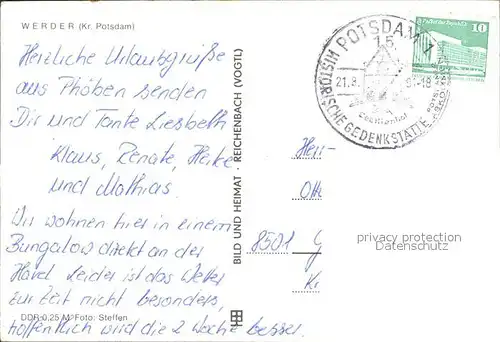 WERDER (Kr. Potsdam)
Herzliche Urlaubsgrüße
aus Phöben senden
Dir und Tante Liesbeth
Klaus, Renate, Heike
und Mathias.
Wir wohnen hier in einem
Bungalow direkt an der
Havel. Leider ist das Wetter
zur Zeit nicht besonders,
hoffentlich wird die 2 Woche besser.
DDR 0,25 M Foto: Steffen
BILD UND HEIMAT · REICHENBACH (VOGTL)
POTSDAM 1
15
21.8.
-18
Cecilienhof
HISTORISCHE GEDENKSTÄTTE
10
Herr
Otto
8501 G
Kr
privacy protection
Datenschutz